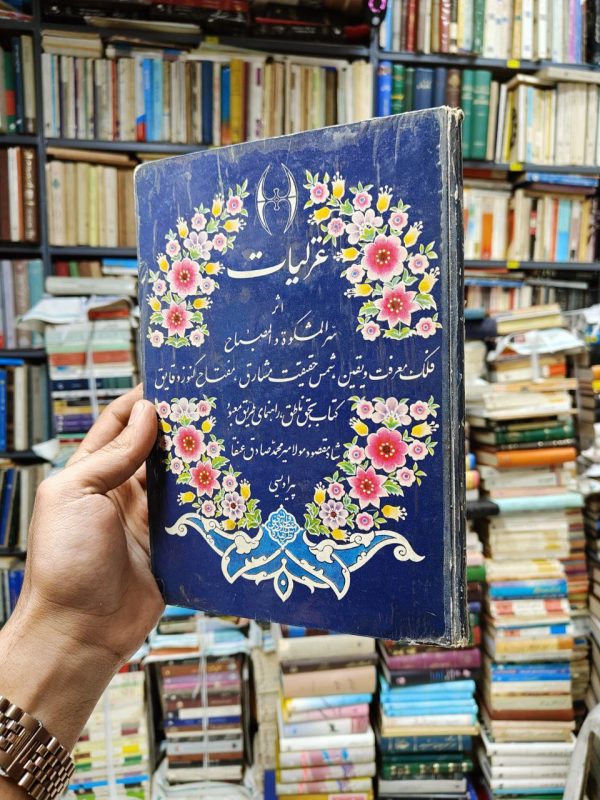 غزلیات
اثر
سر المشکوة و المصباح
فلک معرفت و یقین، شمس حقیقت مشارق، مفتاح کنوز دقایق
کتاب تجلی ناطق، راهنمای طریق معبود
شاه مقصود مولا میر محمد صادق عنقا
پیر اویسی